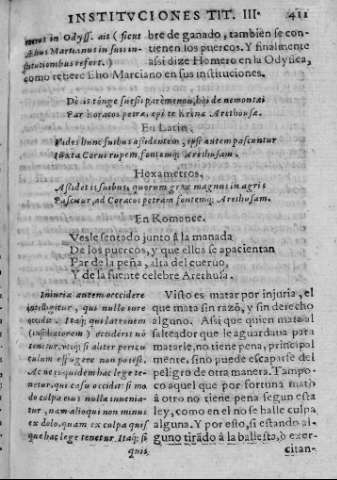 INSTITVCIONES TIT. III. 411
merus in Odyss. ait (sicut
Ælius Martianus in suis in-
stitutionibus refert.)
bre de ganado, tambiẽ se con-
tienen los puercos. Y finalmente
assi dize Homero en la Odysica,
como refiere Elio Marciano en sus instituciones.
Par Coracos petra, epi te krina Arethousa.
En Latin.
Vides hunc suibus assidentem, ipsi autem pascuntur
Iuxta Corui rupem fontemq; Arethusam.
Hexametros.
Assidet is suibus, quorum grex magnus in agris
Pascitur, ad Coracos petram fontemq; Arethusam.
En Romance.
Vesle sentado junto à la manada
De los puercos, y que ellos se apacientan
Par de la peña, alta del cueruo,
Y de la fuente celebre Arethusa.
Iniuria autem occidere
intelligitur, qui nullo iure
occidit. Itaq; qui latronem
(insidiatorem) occiderit nõ
tenetur, vtiq; si aliter pericu
lum effugere non potest.
Ac ne is quidem hac lege te-
netur, qui casu occidit: si mo
do culpa eius nulla inuenia-
tur, nam alioqui non minus
ex dolo, quam ex culpa quis
que hac lege tenetur. Itaq; si
quis,
Visto es matar por injuria, el
que mata sin razõ, y sin derecho
alguno. Assi que quien matò al
salteador que le aguardaua para
matarle, no tiene pena, principal
mente, sino puede escaparse del
peligro de otra manera. Tampo-
co aquel que por fortuna matò
à otro no tiene pena segun esta
ley, como en el no se halle culpa
alguna. Y por esto, si estando al-
guno tirãdo à la ballesta, ò exer-
citan-